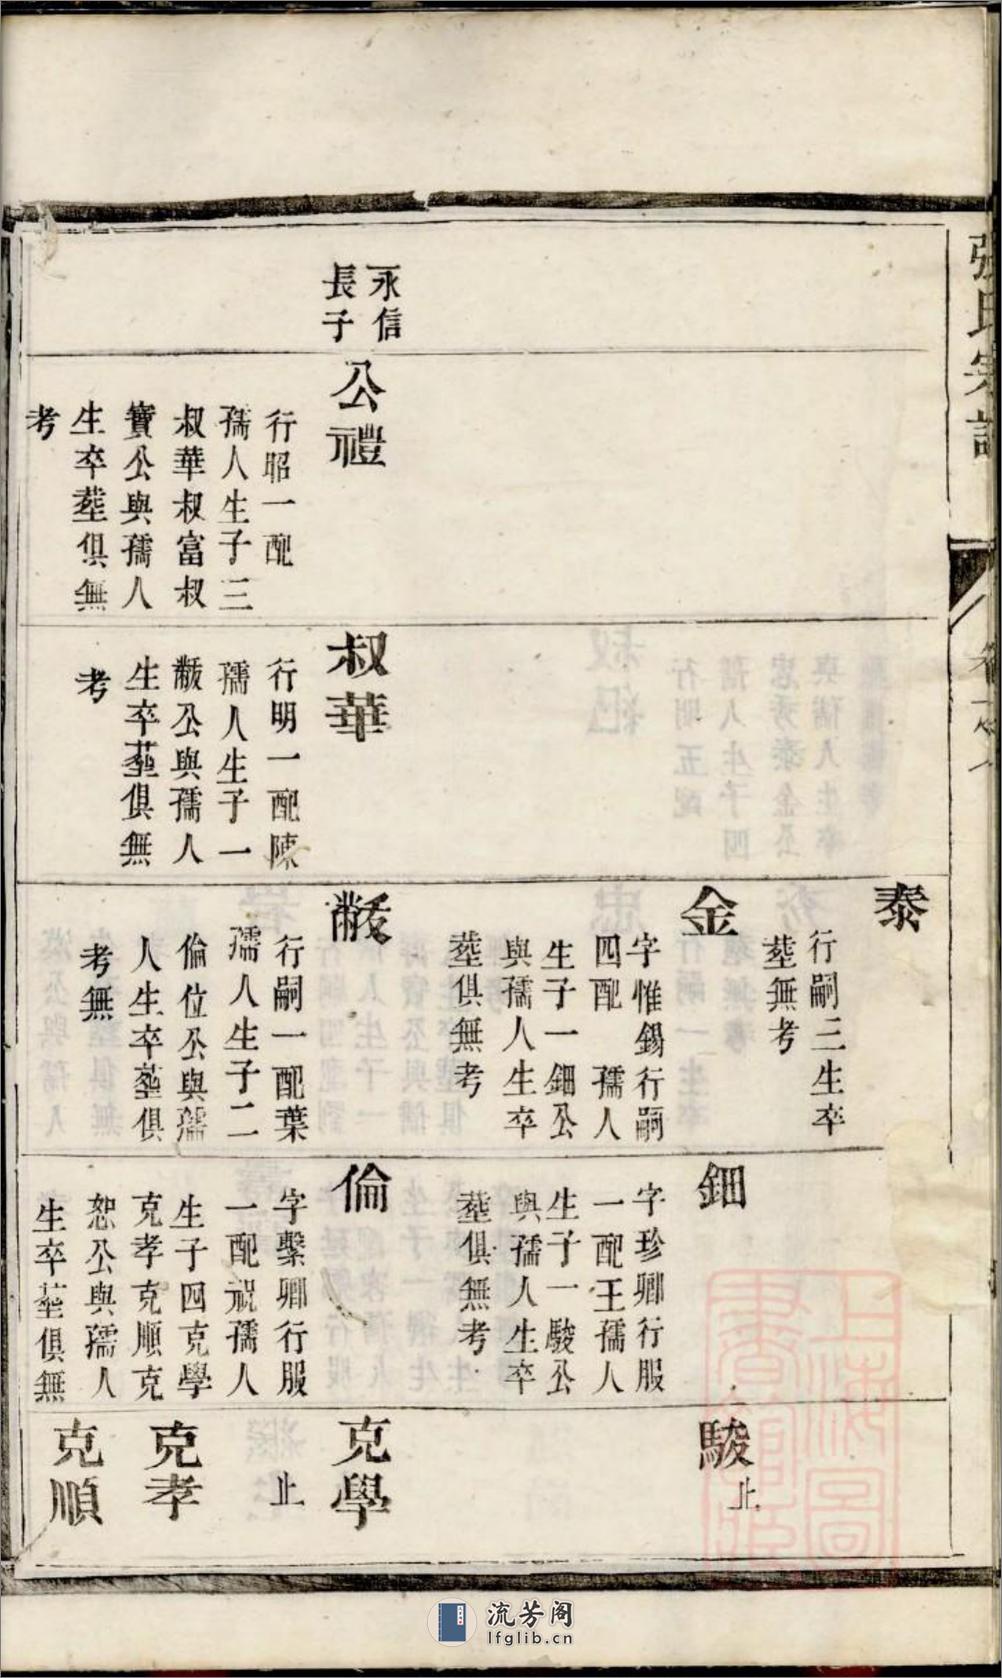 張氏宗譜
卷之八
永信
長子
公禮
行昭一配
孺人生子三
叔華叔富叔
寶公與孺人
生卒塟俱無
考
叔華
行明一配陳
孺人生子一
公與孺人
生卒塟俱無
考
泰
行嗣三生卒
塟無考
金
字惟錫行嗣
四配 孺人
生子一鈿公
與孺人生卒
塟俱無考
行嗣一配葉
孺人生子二
倫位公與孺
人生卒塟俱
考無
鈿
字珍卿行服
一配王孺人
生子一駿公
與孺人生卒
塟俱無考
倫
字槃卿行服
一配祝孺人
生子四克學
克孝克順克
恕公與孺人
生卒塟俱無
駿
止
克學
止
克孝
克順
流芳阁
lfglib.cn